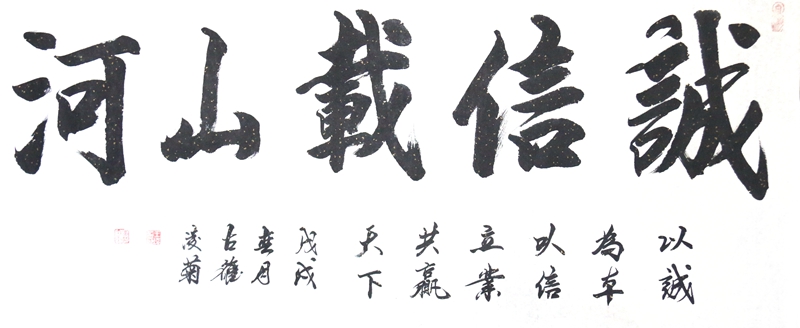 誠信載山河
以誠
為本
以信
立業
共贏
天下
戊戌
月
古
凌菊